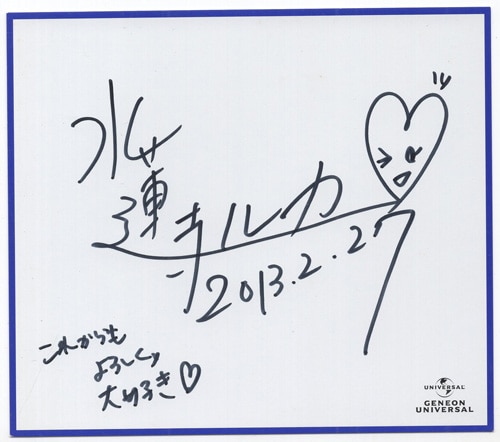 水蓮寺ルカ
2013.2.27
これからも
よろしく、
大好き♡
UNIVERSAL
GENEON
UNIVERSAL